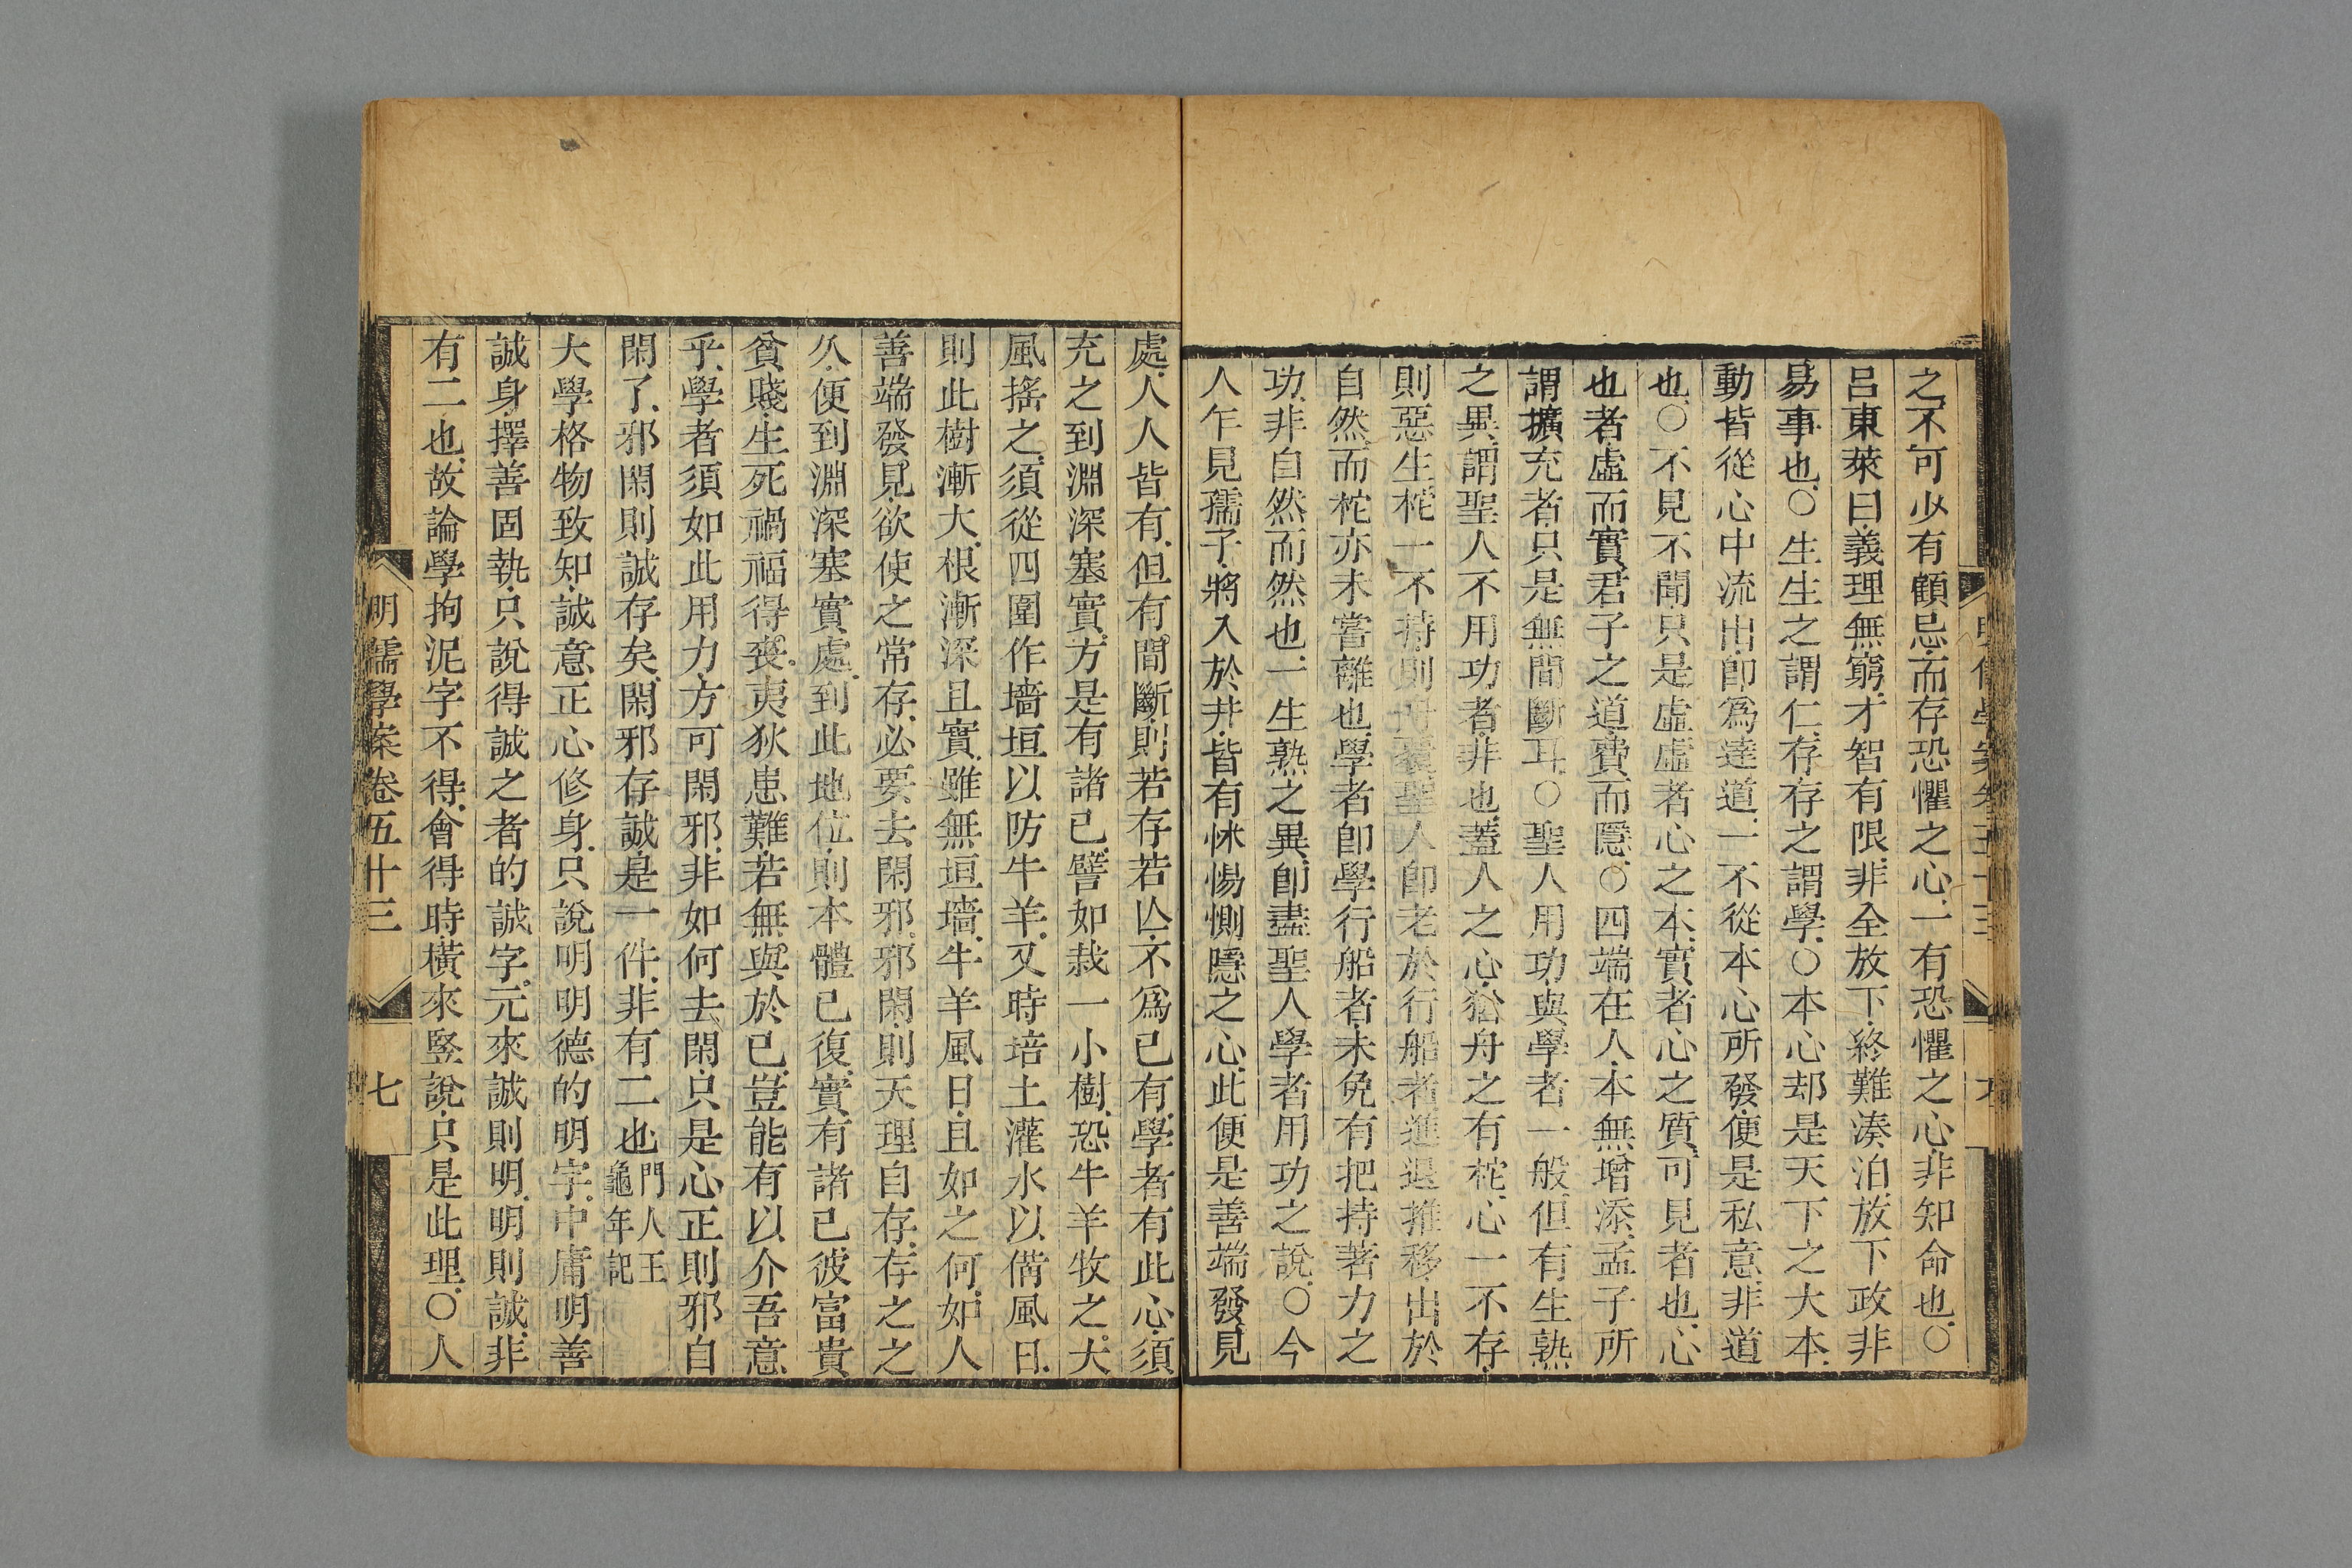 之不可少有顧忌而存恐懼之心一有恐懼之心非知命也○
呂東萊曰義理無窮才智有限非全放下終難湊泊放下政非
易事也○生生之謂仁存存之謂學○本心却是天下之大本
動皆從心中流出卽爲達道一不從本心所發便是私意非道
也○不見不聞只是虛虛者心之本實者心之質可見者也心
也者虛而實君子之道費而隱○四端在人本無增添孟子所
謂擴充者只是無間斷耳○聖人用功與學者一般但有生熟
之異謂聖人不用功者非也蓋人之心猶舟之有柁心一不存
則惡生柁一不持則舟覆聖人卽老於行船者進退推移出於
自然而柁亦未嘗離也學者卽學行船者未免有把持著力之
功非自然而然也一生熟之異卽盡聖人學者用功之說○今
人乍見孺子將入於井皆有怵惕惻隱之心此便是善端發見
處人人皆有但有間斷則若存若亾不爲已有學者有此心須
充之到淵深塞實方是有諸已譬如栽一小樹恐牛羊牧之犬
風搖之須從四圍作墻垣以防牛羊又時培土灌水以備風日
則此樹漸大根漸深且實雖無垣墻牛羊風日且如之何如人
善端發見欲使之常存必要去閑邪邪閑則天理自存存之之
久便到淵深塞實處到此地位則本體已復實有諸已彼富貴
貧賤生死禍福得喪夷狄患難若無與於已豈能有以介吾意
乎學者須如此用力方可閑邪非如何去閑只是心正則邪自
閑了邪閑則誠存矣閑邪存誠是一件非有二也門人王龜年記
大學格物致知誠意正心修身只說明明德的明字中庸明善
誠身擇善固執只說得誠之者的誠字元來誠則明明則誠非
有二也故論學拘泥字不得會得時橫來竪說只是此理○人
明儒學案卷五十三 七